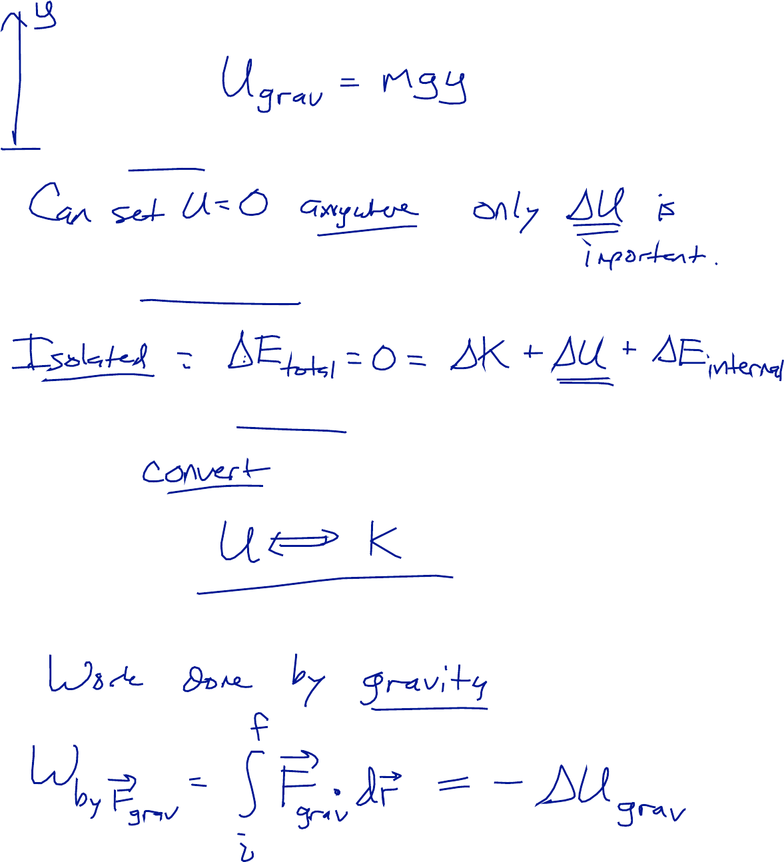 y
U_grav = mgy
Can set U=0 anywhere only ΔU is
important.
Isolated = ΔE_total = 0 = ΔK + ΔU + ΔE_internal
Convert
U ⟺ K
Work done by gravity
W_by F⃗_grav = ∫_i^f F⃗_grav · dr⃗ = - ΔU_grav